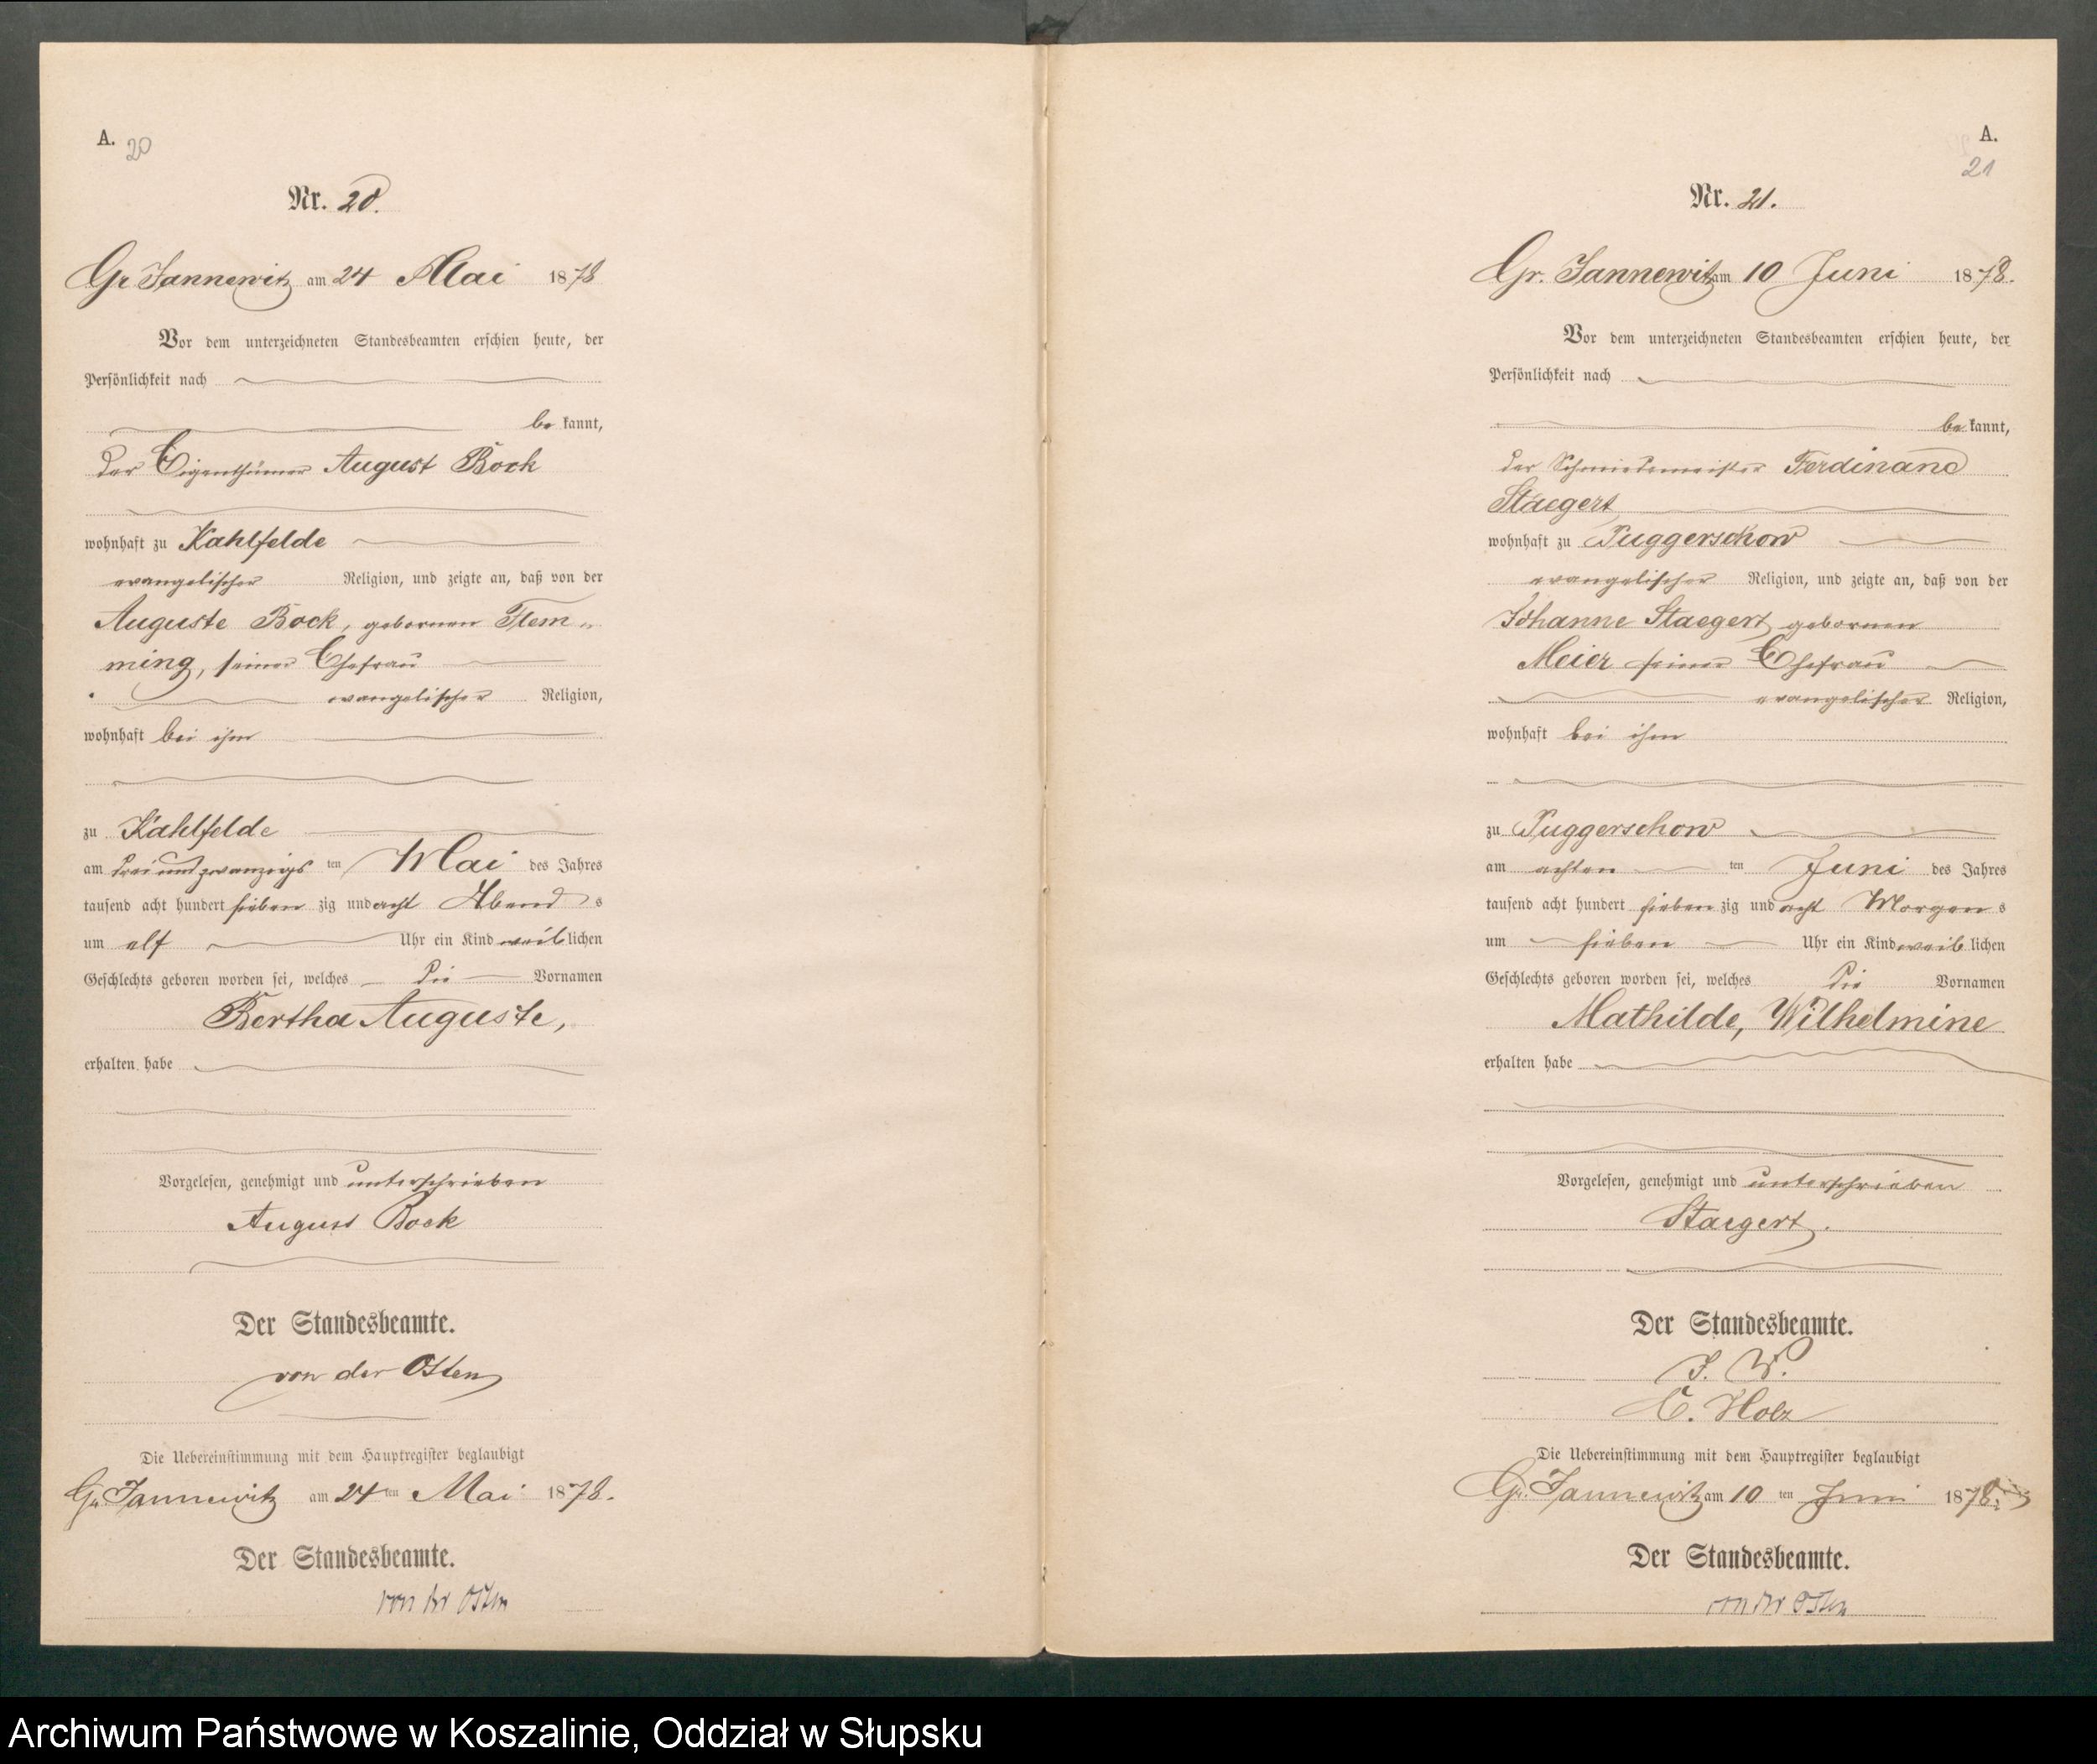 A.
20
Nr. 20.
Gr Jannewitz am 24 Mai 1878
Vor dem unterzeichneten Standesbeamten erschien heute, der
Persönlichkeit nach
be kannt,
der Eigenthümer August Bock
wohnhaft zu Kahlfelde
evangelischer Religion, und zeigte an, daß von der
Auguste Bock, gebornen Flem-
ming, seiner Ehefrau
evangelischer Religion,
wohnhaft bei ihm
zu Kahlfelde
am drei und zwanzigs ten Mai des Jahres
tausend acht hundert sieben zig und acht Abend s
um elf Uhr ein Kind weib lichen
Geschlechts geboren worden sei, welches die Vornamen
Bertha Auguste,
erhalten habe
Vorgelesen, genehmigt und unterschrieben
August Bock
Der Standesbeamte.
von der Osten
Die Uebereinstimmung mit dem Hauptregister beglaubigt
Gr. Jannewitz am 24 ten Mai 1878.
Der Standesbeamte.
von der Osten
A.
21
Nr. 21.
Gr. Jannewitz am 10 Juni 1878.
Vor dem unterzeichneten Standesbeamten erschien heute, der
Persönlichkeit nach
be kannt,
der Schmiedemeister Ferdinand
Staegert
wohnhaft zu Puggerschow
evangelischer Religion, und zeigte an, daß von der
Johanne Staegert gebornen
Meier seiner Ehefrau
evangelischer Religion,
wohnhaft bei ihm
zu Puggerschow
am achten ten Juni des Jahres
tausend acht hundert sieben zig und acht Morgen s
um sieben Uhr ein Kind weib lichen
Geschlechts geboren worden sei, welches die Vornamen
Mathilde, Wilhelmine
erhalten habe
Vorgelesen, genehmigt und unterschrieben
Staegert.
Der Standesbeamte.
J. V.
C. Holz
Die Uebereinstimmung mit dem Hauptregister beglaubigt
Gr. Jannewitz am 10 ten Juni 1878.
Der Standesbeamte.
von der Osten
Archiwum Państwowe w Koszalinie, Oddział w Słupsku